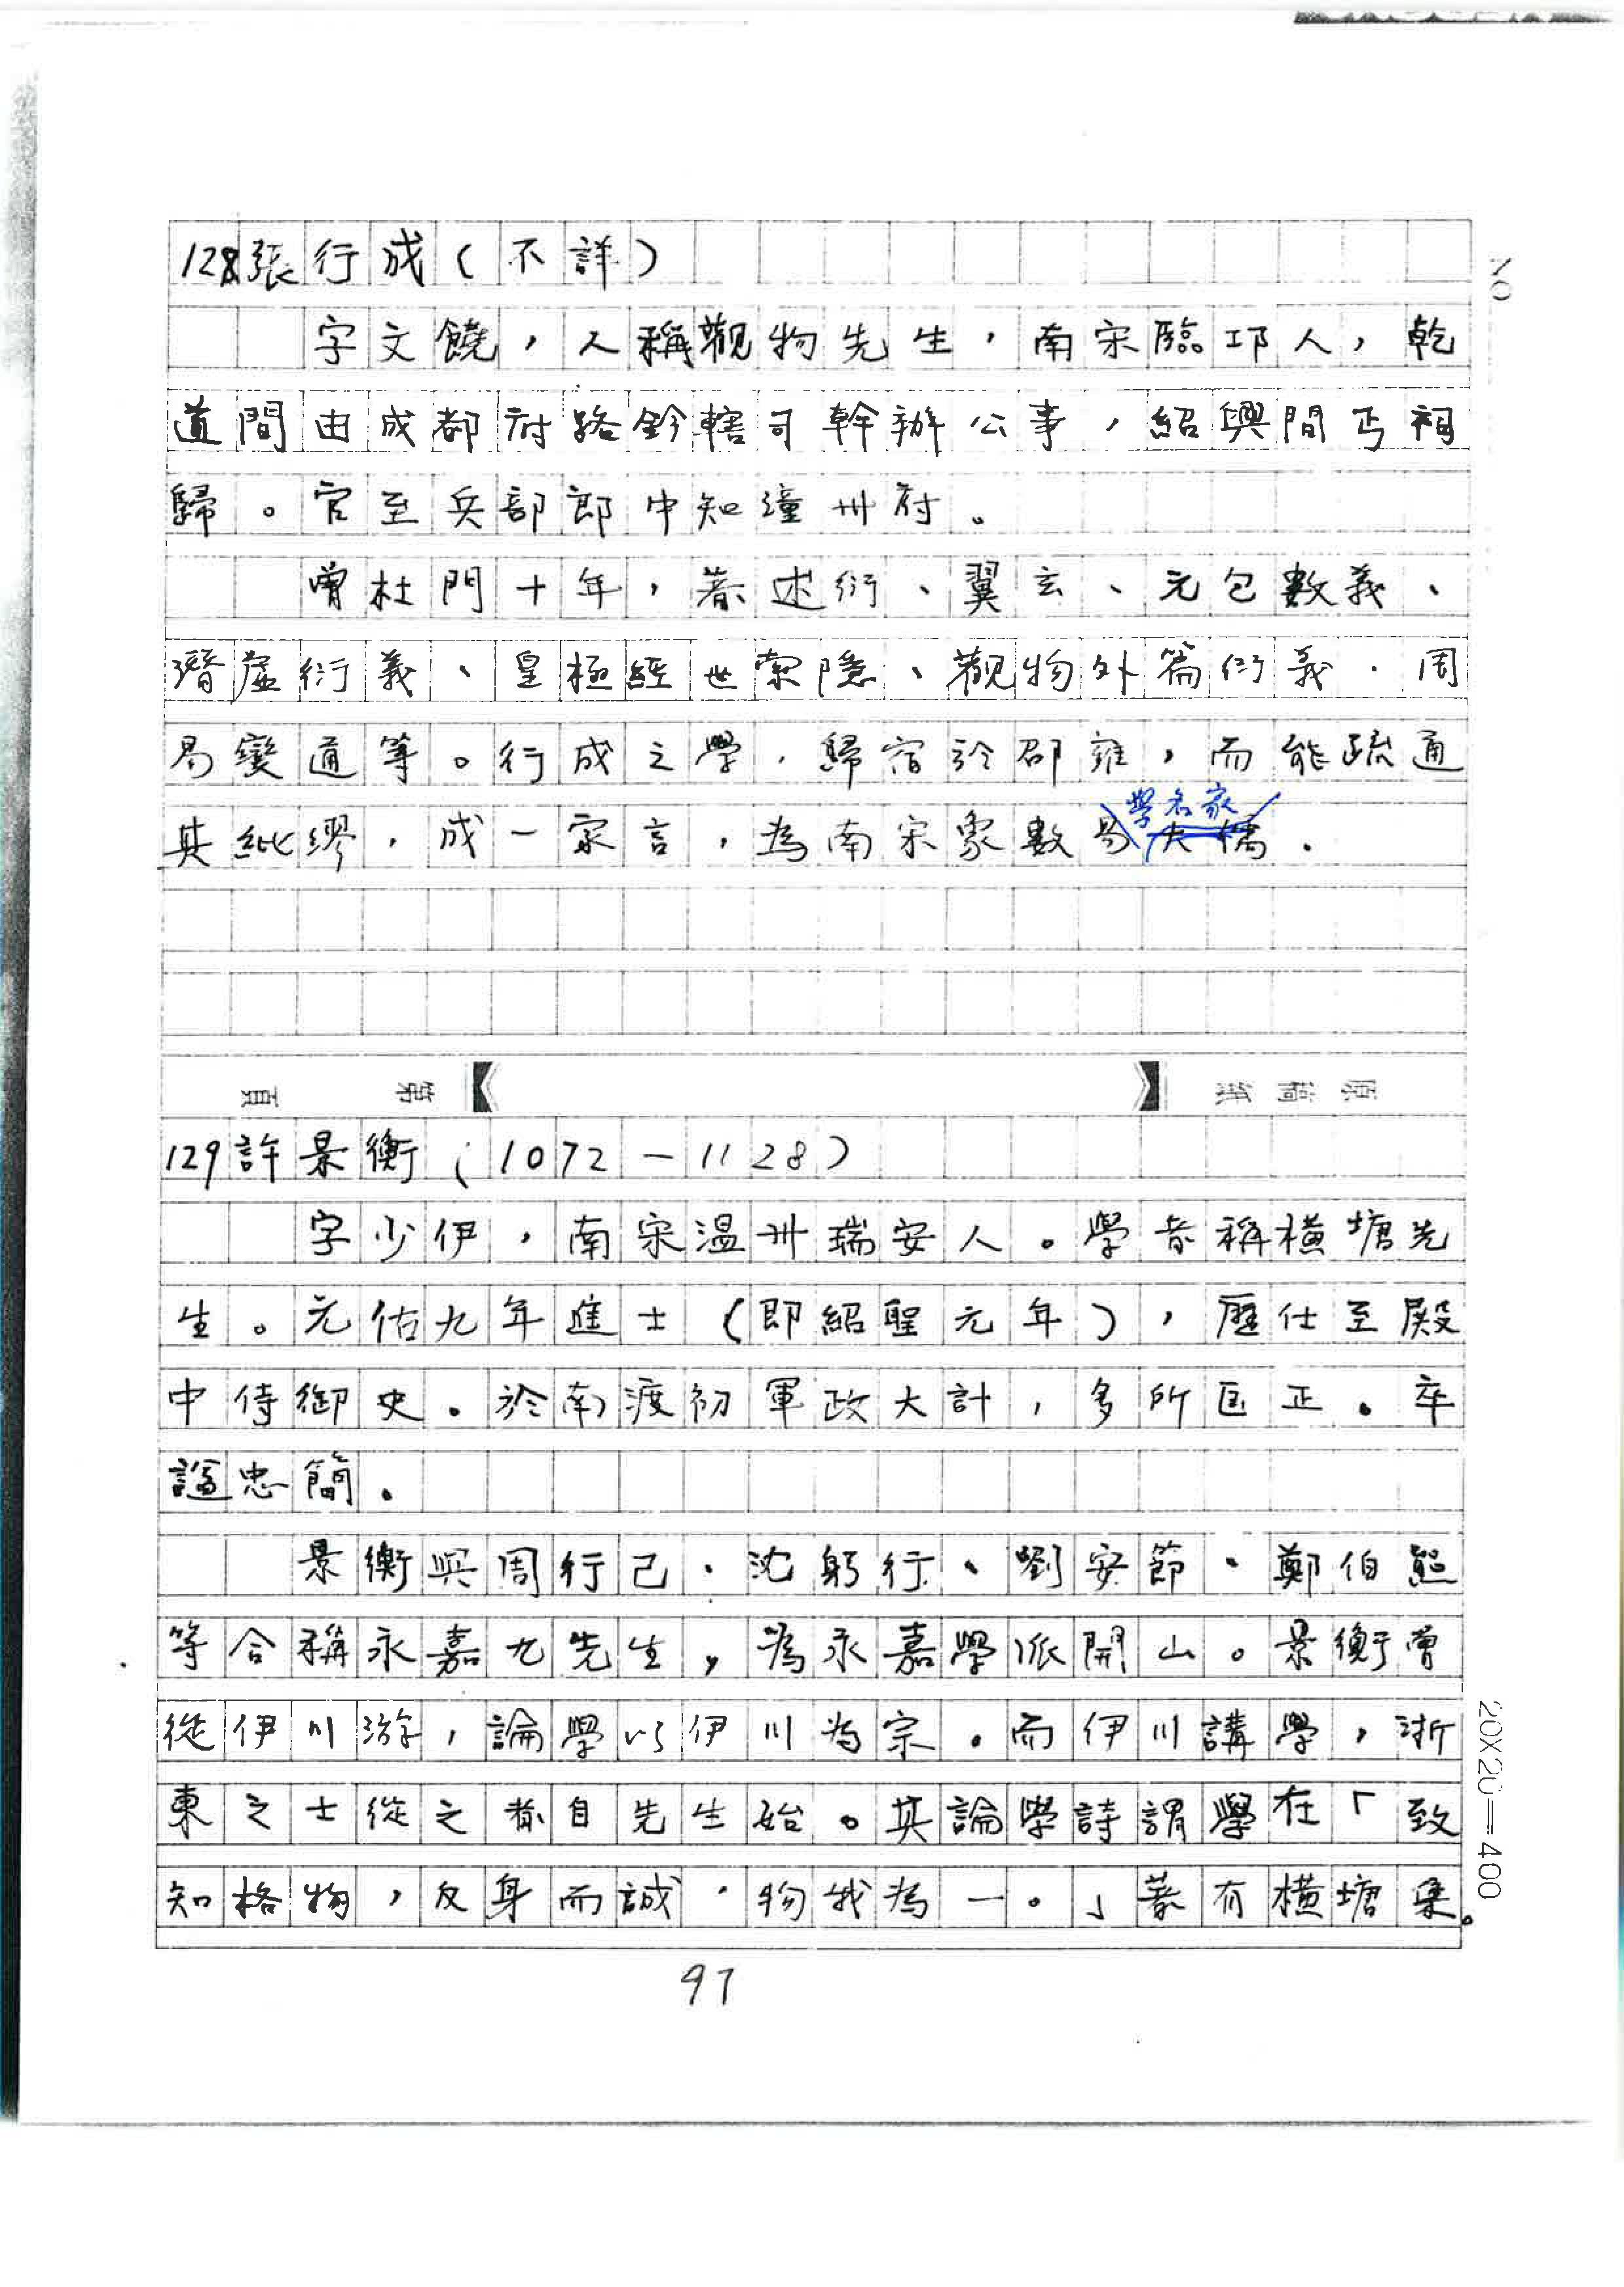 128張行成(不詳)
字文饒,人稱觀物先生,南宋臨邛人,乾
道間由成都府路鈐轄司幹辦公事,紹興間丐祠
歸。官至兵部郎中知潼州府。
曾杜門十年,著述衍、翼玄、元包數義、
潛虛衍義、皇極經世索隱、觀物外篇衍義、周
易變通等。行成之學,歸宿於邵雍,而能疏通
其紕繆,成一家言,為南宋象數易學名家大儒.
第 頁
原稿紙
129許景衡(1072-1128)
字少伊,南宋溫州瑞安人。學者稱橫塘先
生。元佑九年進士(即紹聖元年),歷仕至殿
中侍御史。於南渡初軍政大計,多所匡正。卒
諡忠簡。
景衡與周行己、沈躬行、劉安節、鄭伯熊
等合稱永嘉九先生,為永嘉學派開山。景衡曾
從伊川游,論學以伊川為宗。而伊川講學,浙
東之士從之者自先生始。其論學詩謂學在「致
知格物,反身而誠,物我為一。」著有橫塘集。
97
NO
20X20=400